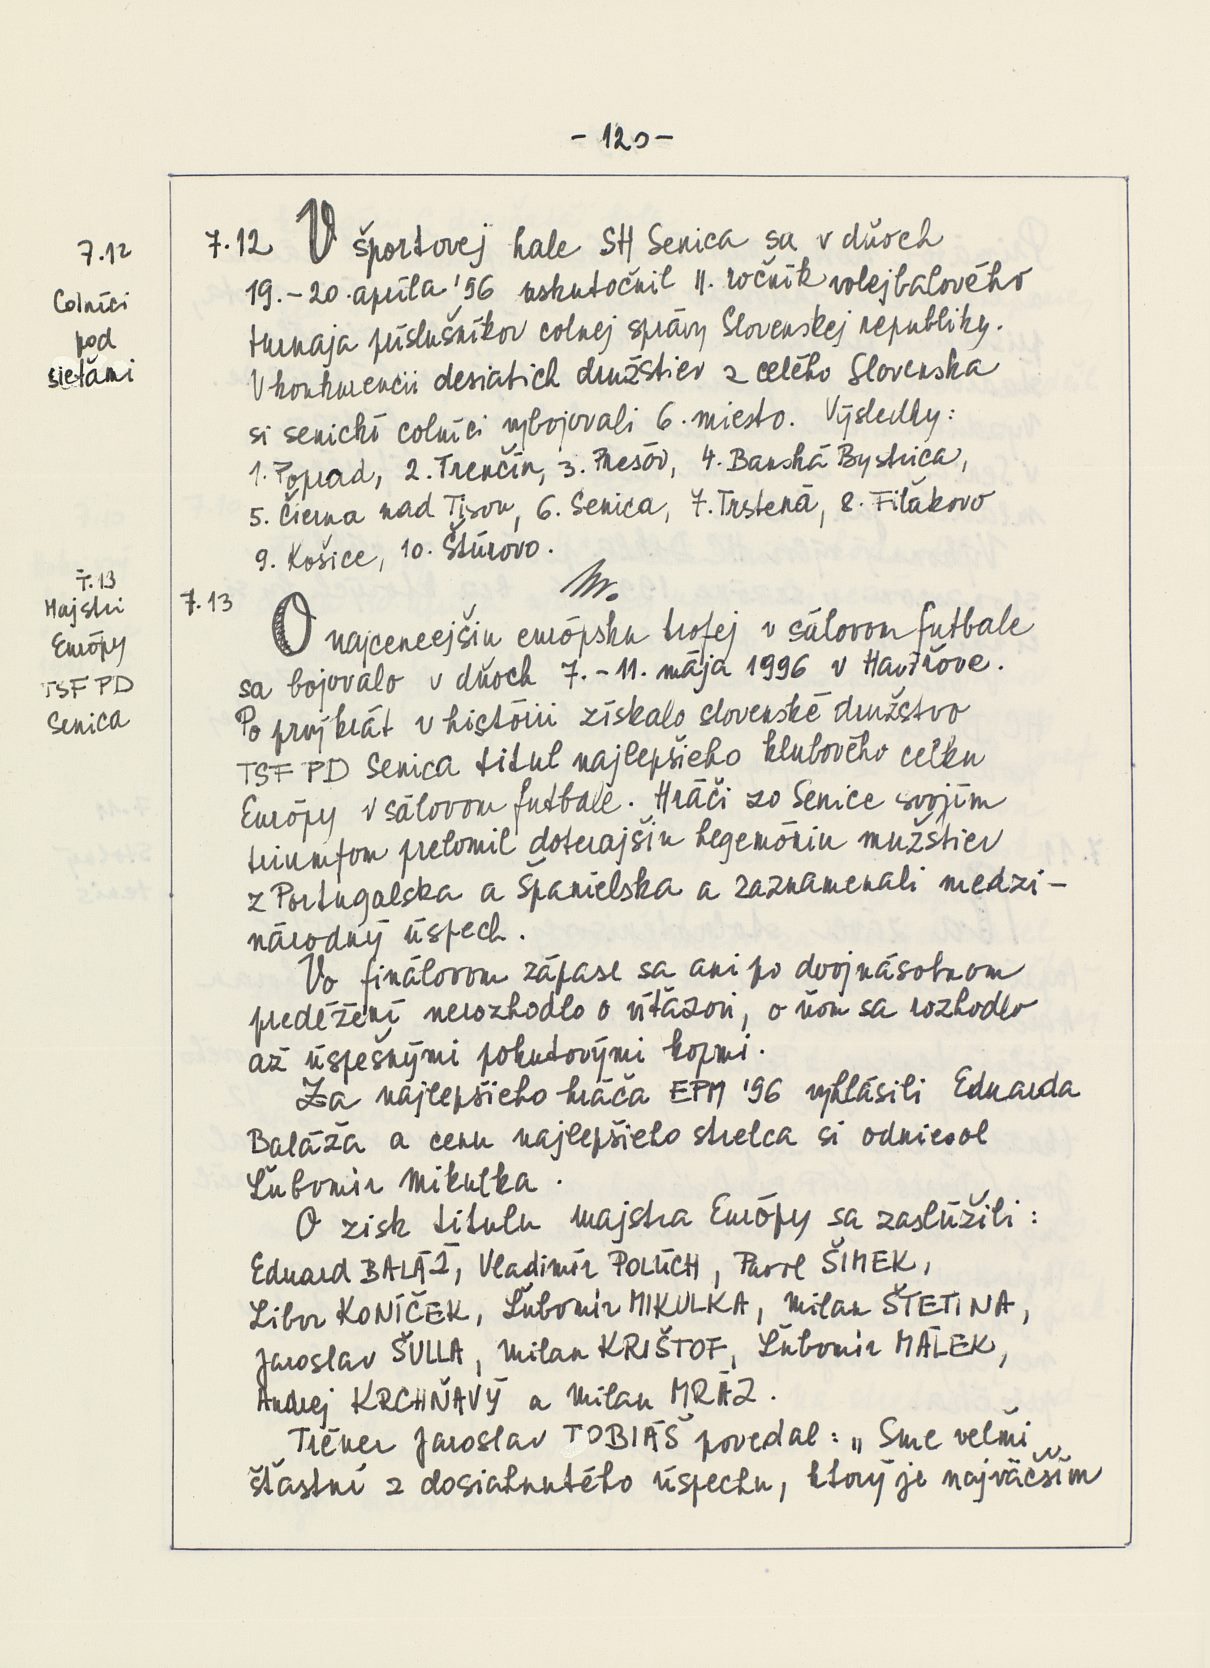 - 120 -
7.12
Colníci
pod
sieťami
7.12 V športovej hale SH Senica sa v dňoch
19.-20. apríla '96 uskutočnil II. ročník volejbalového
turnaja príslušníkov colnej správy Slovenskej republiky.
V konkurencii desiatich družstiev z celého Slovenska
si senickí colníci vybojovali 6. miesto. Výsledky:
1. Poprad, 2. Trenčín, 3. Prešov, 4. Banská Bystrica,
5. Čierna nad Tisou, 6. Senica, 7. Trstená, 8. Fiľakovo
9. Košice, 10. Štúrovo.
7.13
Majstri
Európy
TSF PD
Senica
7.13 O najcenejšiu európsku trofej v sálovom futbale
sa bojovalo v dňoch 7.-11. mája 1996 v Havířove.
Po prvýkrát v histórii získalo slovenské družstvo
TSF PD Senica titul najlepšieho klubového celku
Európy v sálovom futbale. Hráči zo Senice svojím
triumfom prelomil doterajšiu hegemóniu mužstiev
z Portugalska a Španielska a zaznamenali medzi-
národný úspech.
Vo finálovom zápase sa ani po dvojnásobnom
predĺžení nerozhodlo o víťazovi, o ňom sa rozhodlo
až úspešnými pokutovými kopmi.
Za najlepšieho hráča EPM '96 vyhlásili Eduarda
Baláža a cenu najlepšieho strelca si odniesol
Ľubomír Mikulka.
O zisk titulu majstra Európy sa zaslúžili:
Eduard BALÁŽ, Vladimír POLÚCH, Pavel ŠIMEK,
Libor KONÍČEK, Ľubomír MIKULKA, Milan ŠTETINA,
Jaroslav ŠULLA, Milan KRIŠTOF, Ľubomír MÁLEK,
Andrej KRCHŇAVÝ a Milan MRÁZ.
Tréner Jaroslav TOBIÁŠ povedal: „Sme veľmi
šťastní z dosiahnutého úspechu, ktorý je najväčším